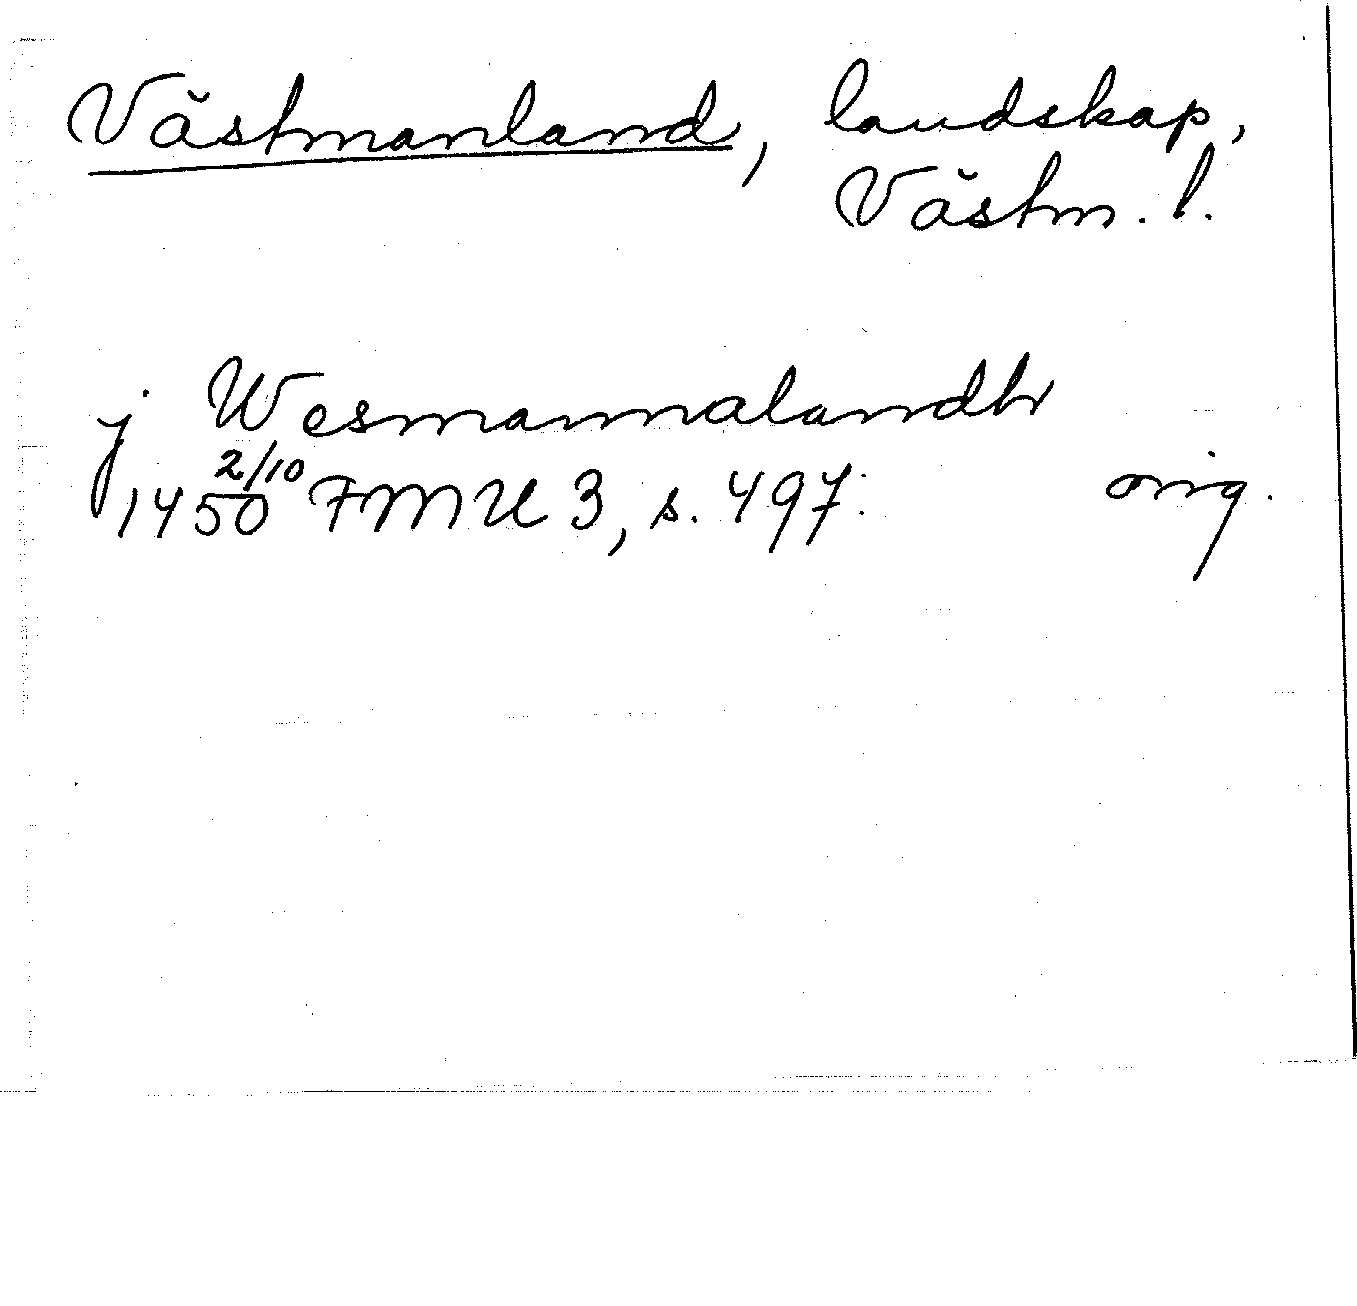 Västmanland, landskap,
Västm. l.
j Wesmannalandh
1450 2/10 FMU 3, s. 497. orig.